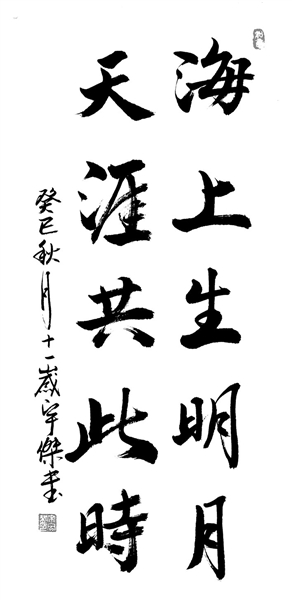 海上生明月
天涯共此時
癸巳秋月十一歲宇傑書